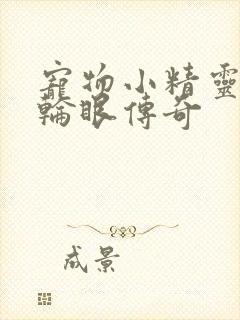 寵物小精靈
輪眼傳奇
成景